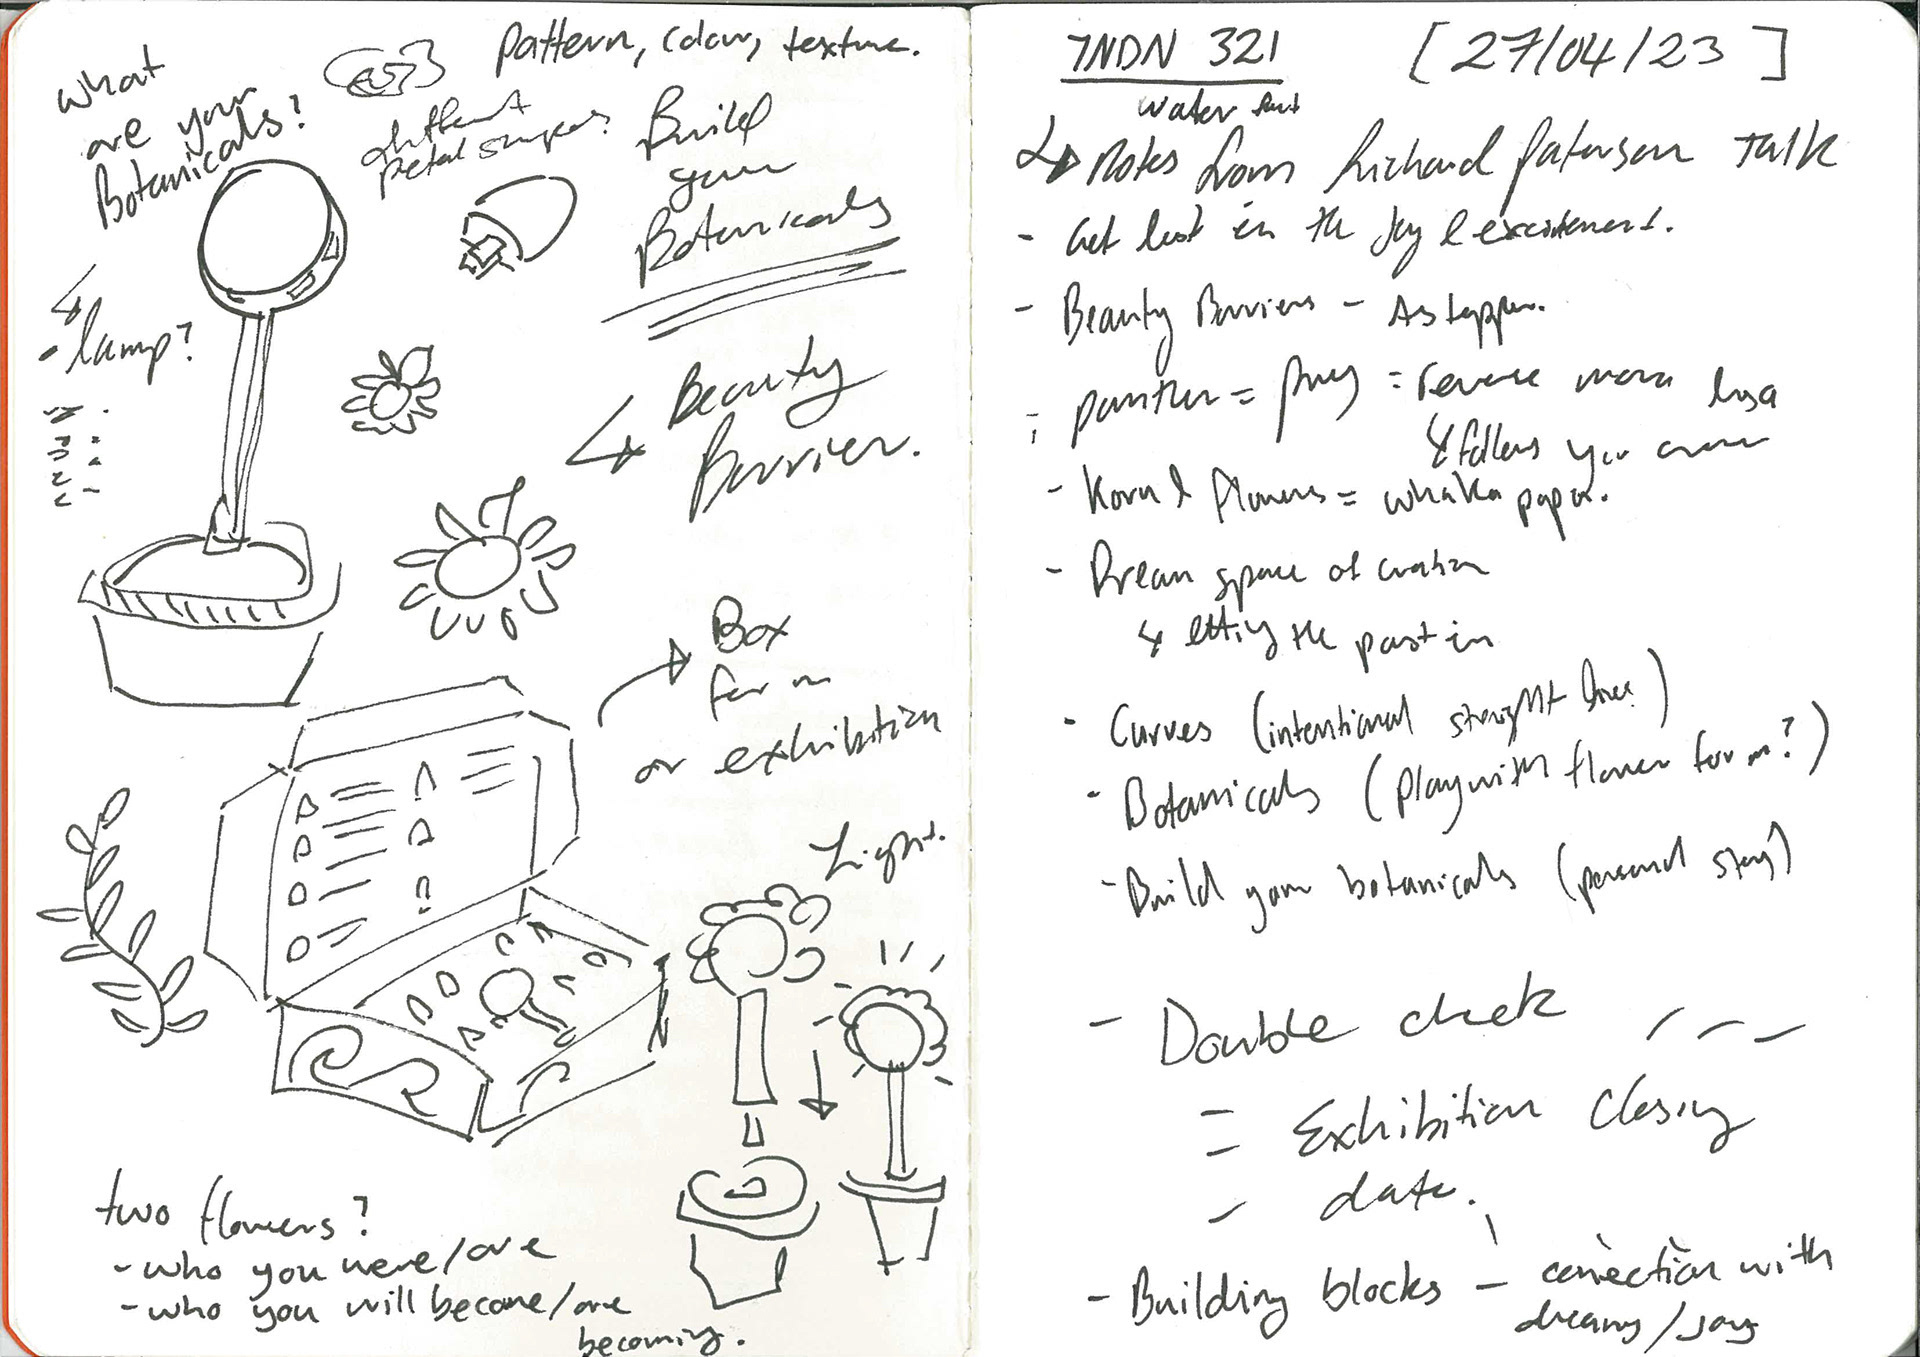 what
are your
Botanicals?
Pattern, colour, texture.
different
petal shapes?
Build
your
Botanicals
lamp?
Beauty
Barrier.
Box
form
or exhibition
Light.
two flowers?
- who you were/are
- who you will become/are
becoming.
INDN 321 [27/04/23]
water
Notes from Richard Paterson Talk
- Get lost in the joy & excitement.
- Beauty Barriers - As
panther = prey = reverse mona lisa
follows you
- Koru & flowers = whakapapa.
- Dream space of creation
letting the past in
- Curves (intentional straight lines?)
- Botanicals (play with flower form?)
- Build your botanicals (personal story)
- Double check
= Exhibition Closing
- date.
- Building blocks - connection with
dreams/joys